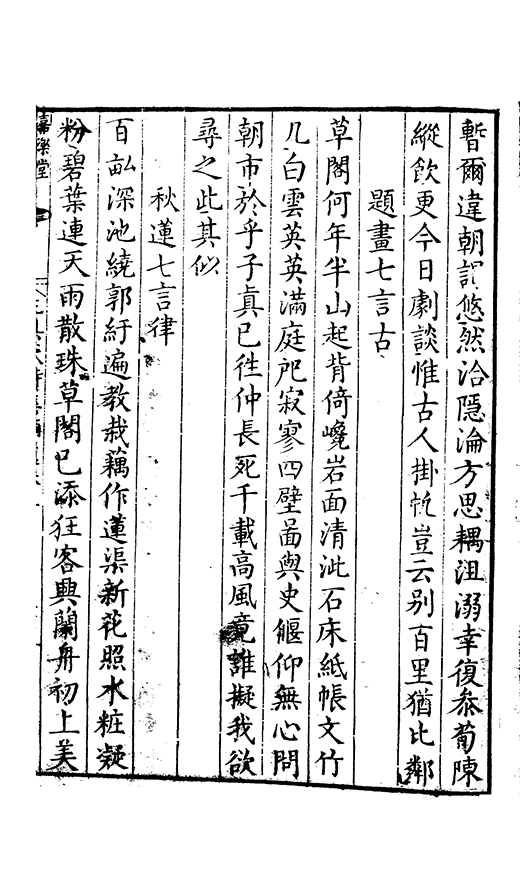 暫爾違朝謁悠然洽隱淪方思耦沮溺幸復叅荀陳
縱飲更今日劇談惟古人掛帆豈云别百里猶比鄰
題畫七言古
草閣何年半山起背倚巉岩面清泚石床紙帳文竹
几白雲英英滿庭戺寂寥四壁啚與史偃仰無心問
朝市於乎子真已徃仲長死千載高風竟誰擬我欲
尋之此其似
秋蓮七言律
百畝深池繞郭紆遍教栽藕作蓮渠新花照水粧凝
粉碧葉連天雨散珠草閣已添狂客興蘭舟初上美